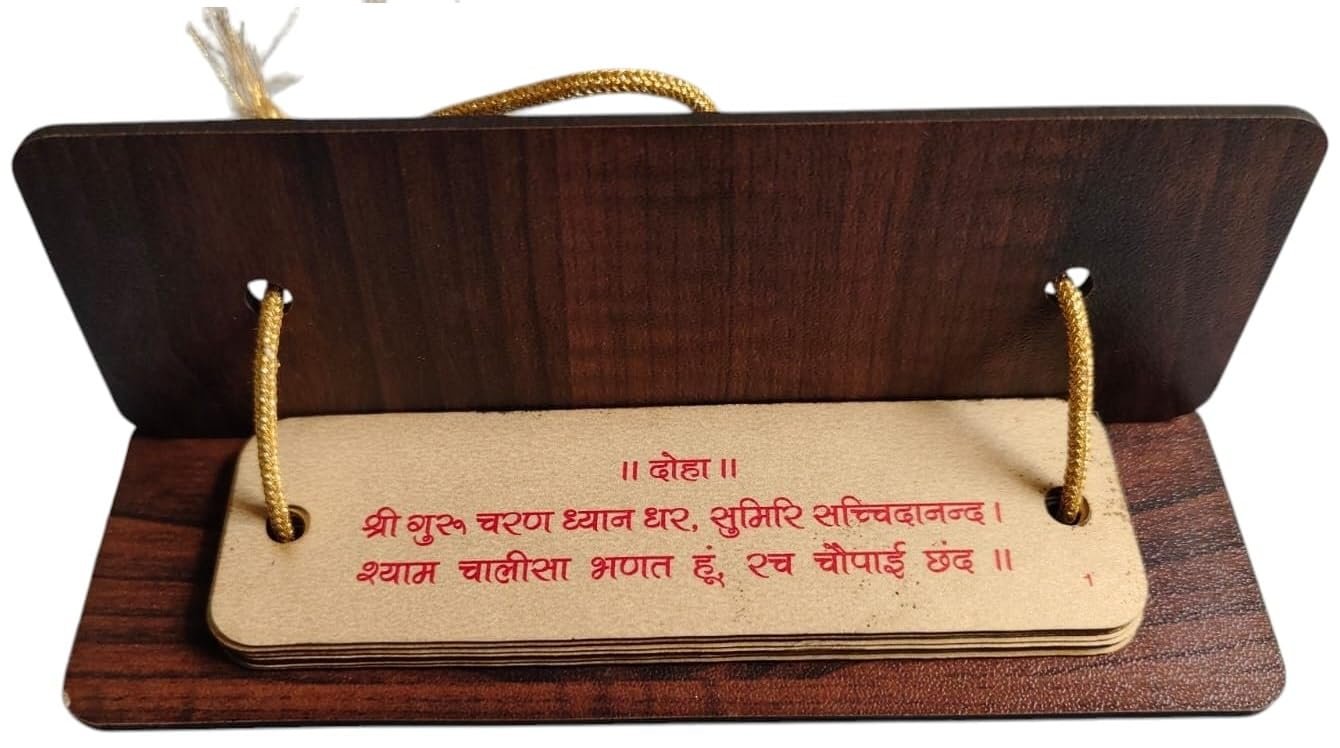 ॥ दोहा ॥
श्री गुरू चरण ध्यान धर, सुमिरि सच्चिदानन्द।
श्याम चालीसा भणत हूं, रच चौपाई छंद ॥
1